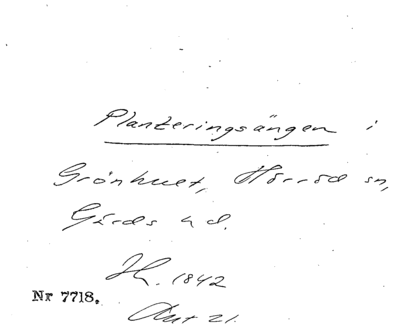 Planteringsängen i
Grönhult, Hörröd sn,
Gärds hd.
1842
Nr 7718.
Akt 21.